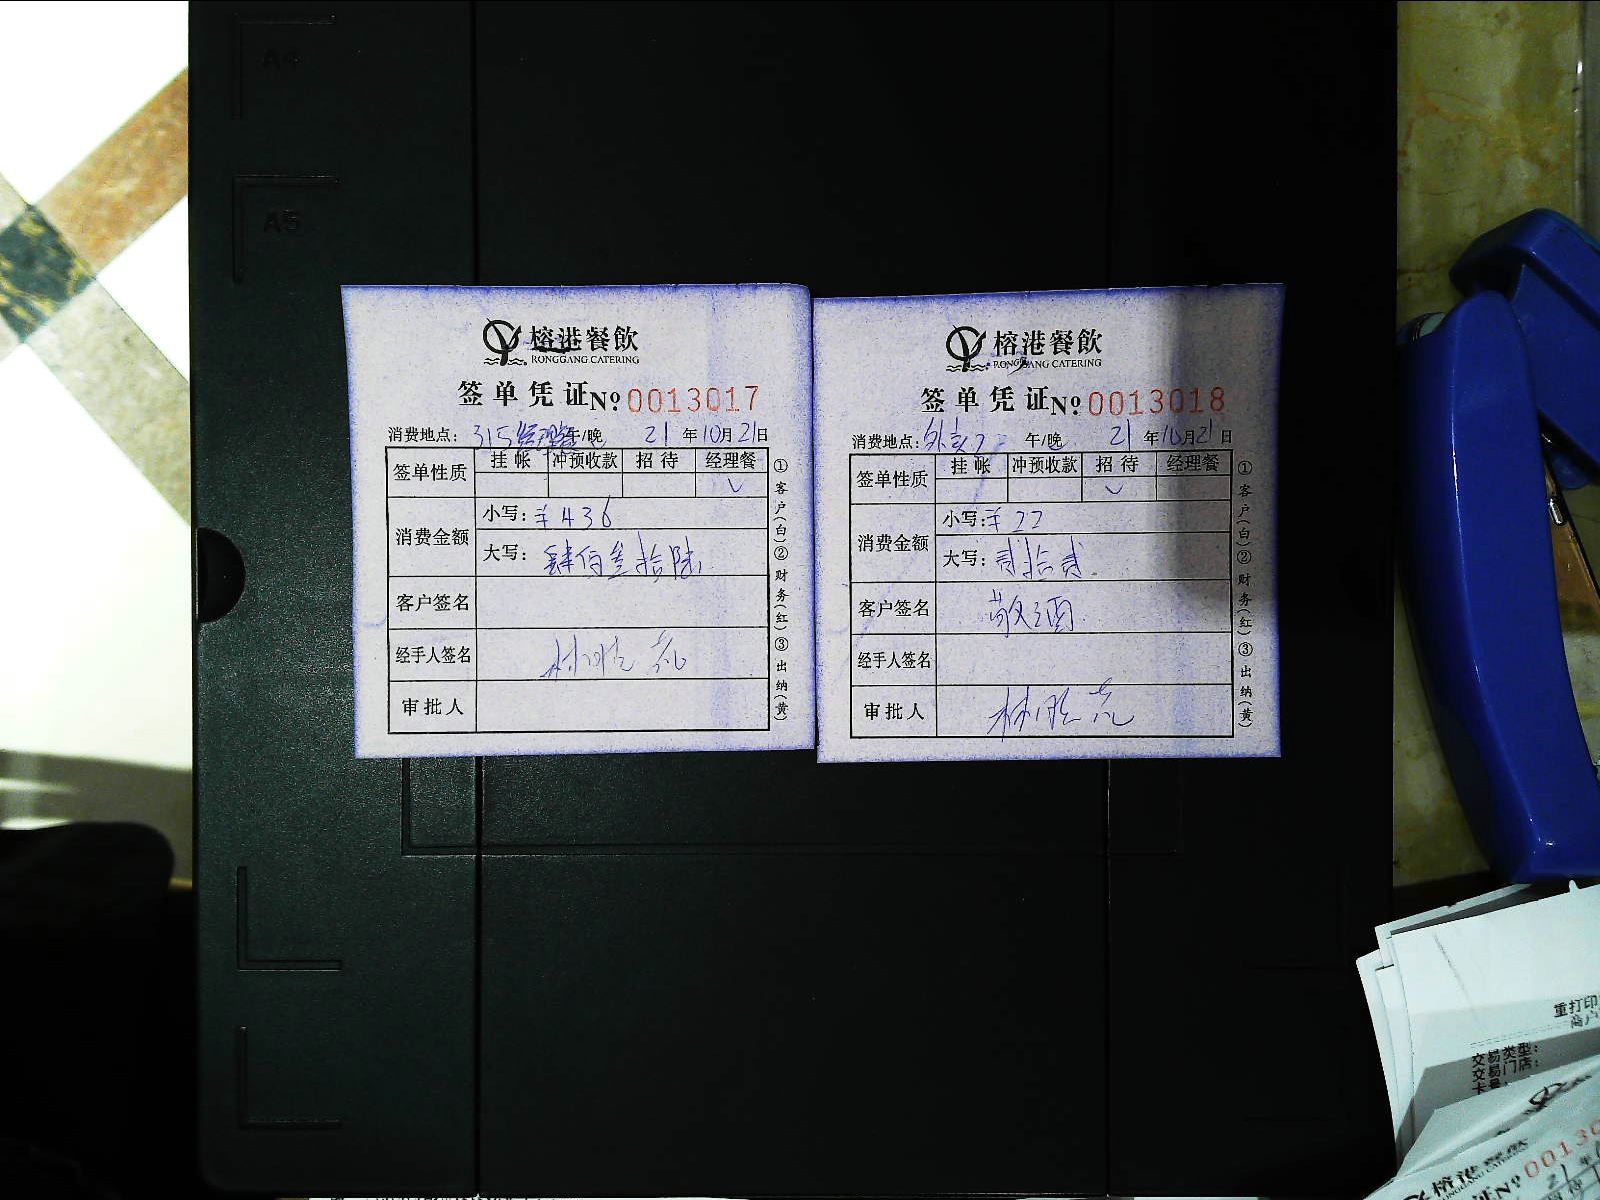 A4
A5
榕港餐飲
RONGGANG CATERING
签单凭证№0013017
消费地点: 315 午/晚 21年10月21日
签单性质 挂帐 冲预收款 招待 经理餐
✓
消费金额 小写: ¥436
大写: 肆佰叁拾陆
客户签名
经手人签名
审批人
①客户(白)②财务(红)③出纳(黄)
榕港餐飲
RONGGANG CATERING
签单凭证№0013018
消费地点: 午/晚 21年10月21日
签单性质 挂帐 冲预收款 招待 经理餐
✓
消费金额 小写: ¥22
大写: 贰拾贰
客户签名 敬酒
经手人签名
审批人
①客户(白)②财务(红)③出纳(黄)
重打印
商户
交易类型:
交易门店:
卡号:
榕港餐飲
№00130